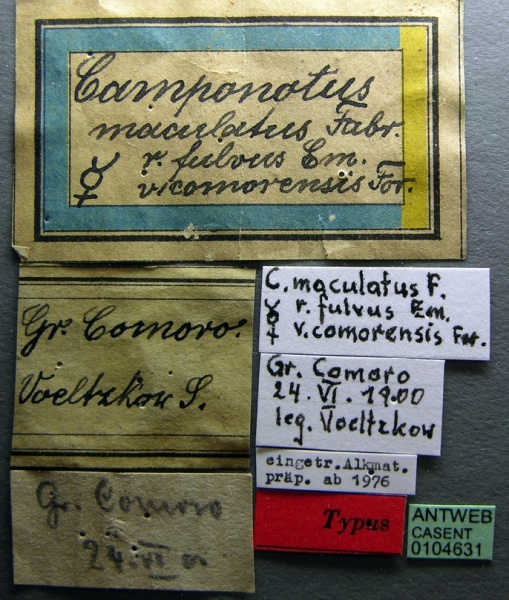 Camponotus
maculatus Fabr.
☿ r. fulvus Em.
v. comorensis For.
Gr. Comoro.
Voeltzkow S.
C. maculatus F.
☿ r. fulvus Em.
v. comorensis For.
Gr. Comoro
24. VI. 1900
leg. Voeltzkow
eingetr. Alkmat.
präp. ab 1976
Gr. Comoro
24. VI
Typus
ANTWEB
CASENT
0104631